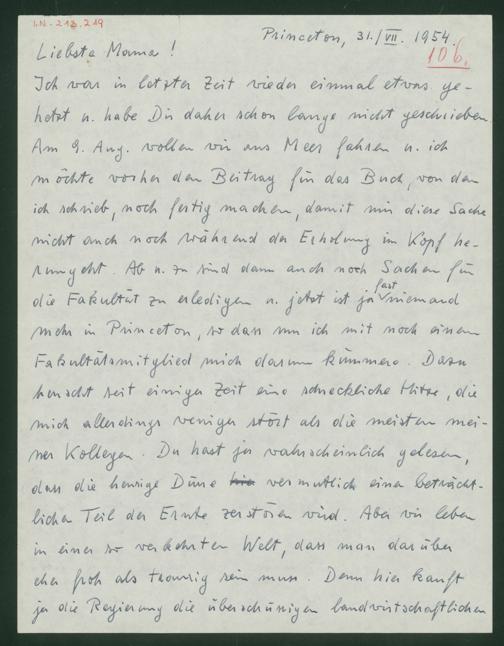 I.N. 213.219
Princeton, 31./VII. 1954.
106.
Liebste Mama!
Ich war in letzter Zeit wieder einmal etwas ge-
hetzt u. habe Dir daher schon lange nicht geschrieben.
Am 9. Aug. wollen wir ans Meer fahren u. ich
möchte vorher den Beitrag für das Buch, von dem
ich schrieb, noch fertig machen, damit mir diese Sache
nicht auch noch während der Erholung im Kopf he-
rumgeht. Ab u. zu sind dann auch noch Sachen für
die Fakultät zu erledigen u. jetzt ist ja fast niemand
mehr in Princeton, so dass nur ich mit noch einem
Fakultätsmitglied mich darum kümmere. Dazu
herrscht seit einiger Zeit eine schreckliche Hitze, die
mich allerdings weniger stört als die meisten mei-
ner Kollegen. Du hast ja wahrscheinlich gelesen,
dass die heurige Dürre hier vermutlich einen beträcht-
lichen Teil der Ernte zerstören wird. Aber wir leben
in einer so verkehrten Welt, dass man darüber
eher froh als traurig sein muss. Denn hier kauft
ja die Regierung die überschüssigen landwirtschaftlichen